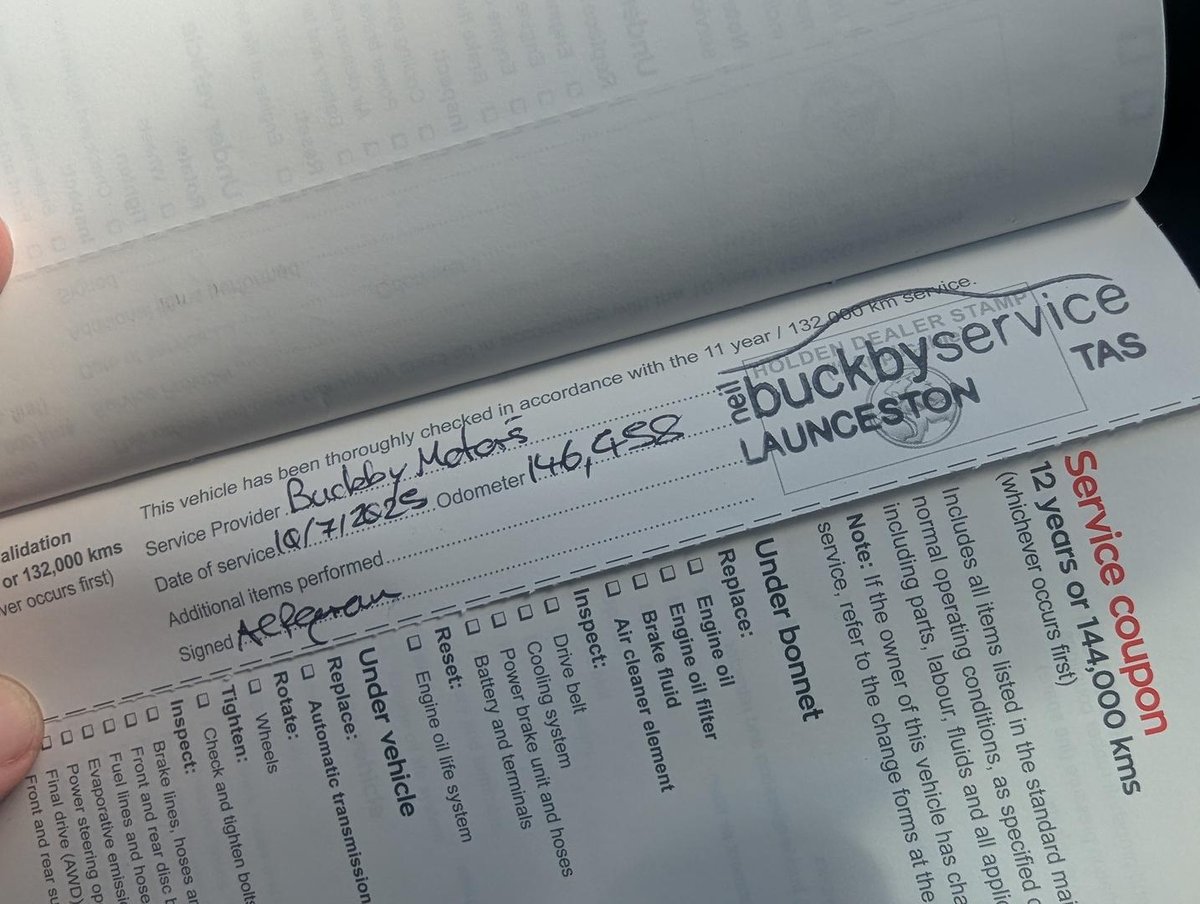 This vehicle has been thoroughly checked in accordance with the 11 year / 132,000 km service.
Service Provider Buckby Motors
Date of service 10/7/2025 Odometer 146,458
Additional items performed
Signed
HOLDEN DEALER STAMP
neil buckbyservice
LAUNCESTON TAS
alidation
or 132,000 kms
ver occurs first)
Service coupon
12 years or 144,000 kms
(whichever occurs first)
Includes all items listed in the standard mai
normal operating conditions, as specified
including parts, labour, fluids and all applic
Note: If the owner of this vehicle has cha
service, refer to the change forms at the
Under bonnet
Replace:
Engine oil
Engine oil filter
Brake fluid
Air cleaner element
Inspect:
Drive belt
Cooling system
Power brake unit and hoses
Battery and terminals
Reset:
Engine oil life system
Under vehicle
Replace:
Automatic transmission
Rotate:
Wheels
Tighten:
Check and tighten bolts
Inspect:
Brake lines, hoses ar
Front and rear disc b
Fuel lines and hose
Evaporative emissi
Power steering op
Final drive (AWD)
Front and rear su